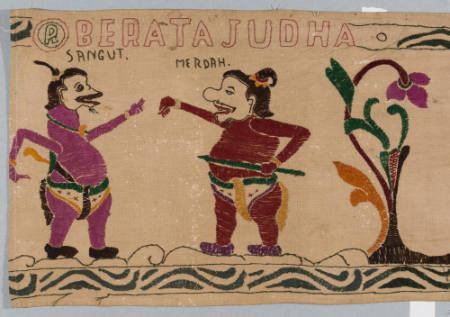 R BERATA JUDHA
SANGUT.
MERDAH.